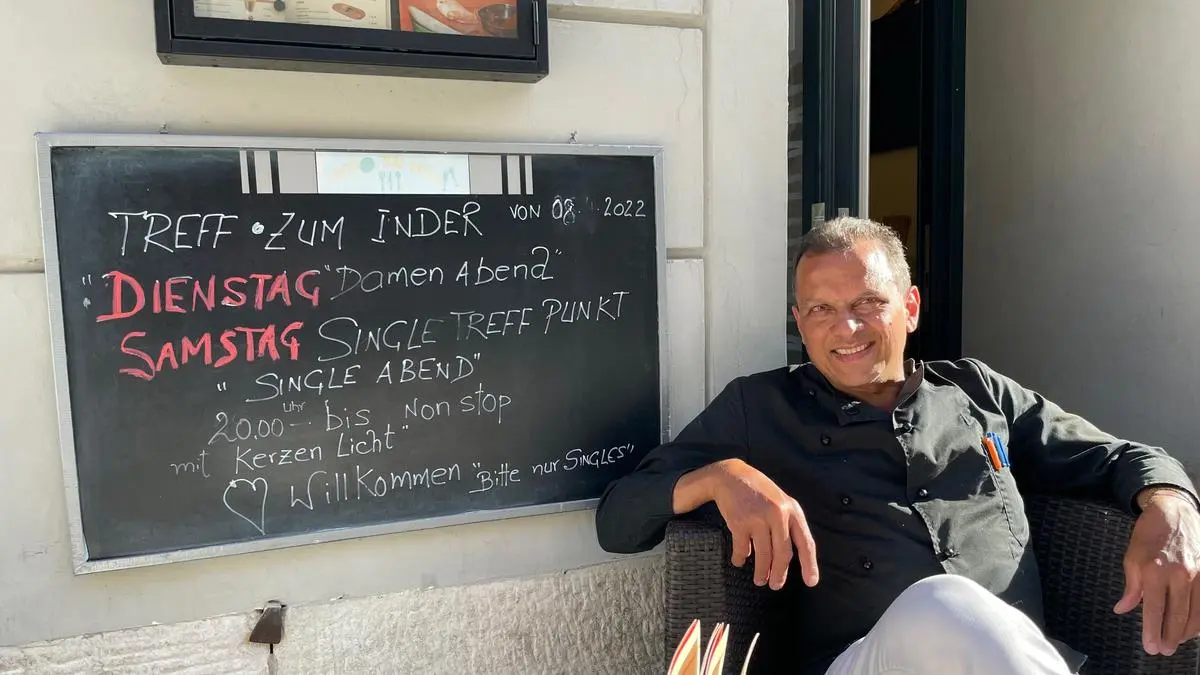 TREFF • ZUM INDER VON 08. 2022
"DIENSTAG "Damen Abend"
SAMSTAG SINGLE TREFF PUNKT
" SINGLE ABEND"
20.00 uhr — bis Non stop
mit Kerzen Licht"
♡ Willkommen "Bitte nur SINGLES"